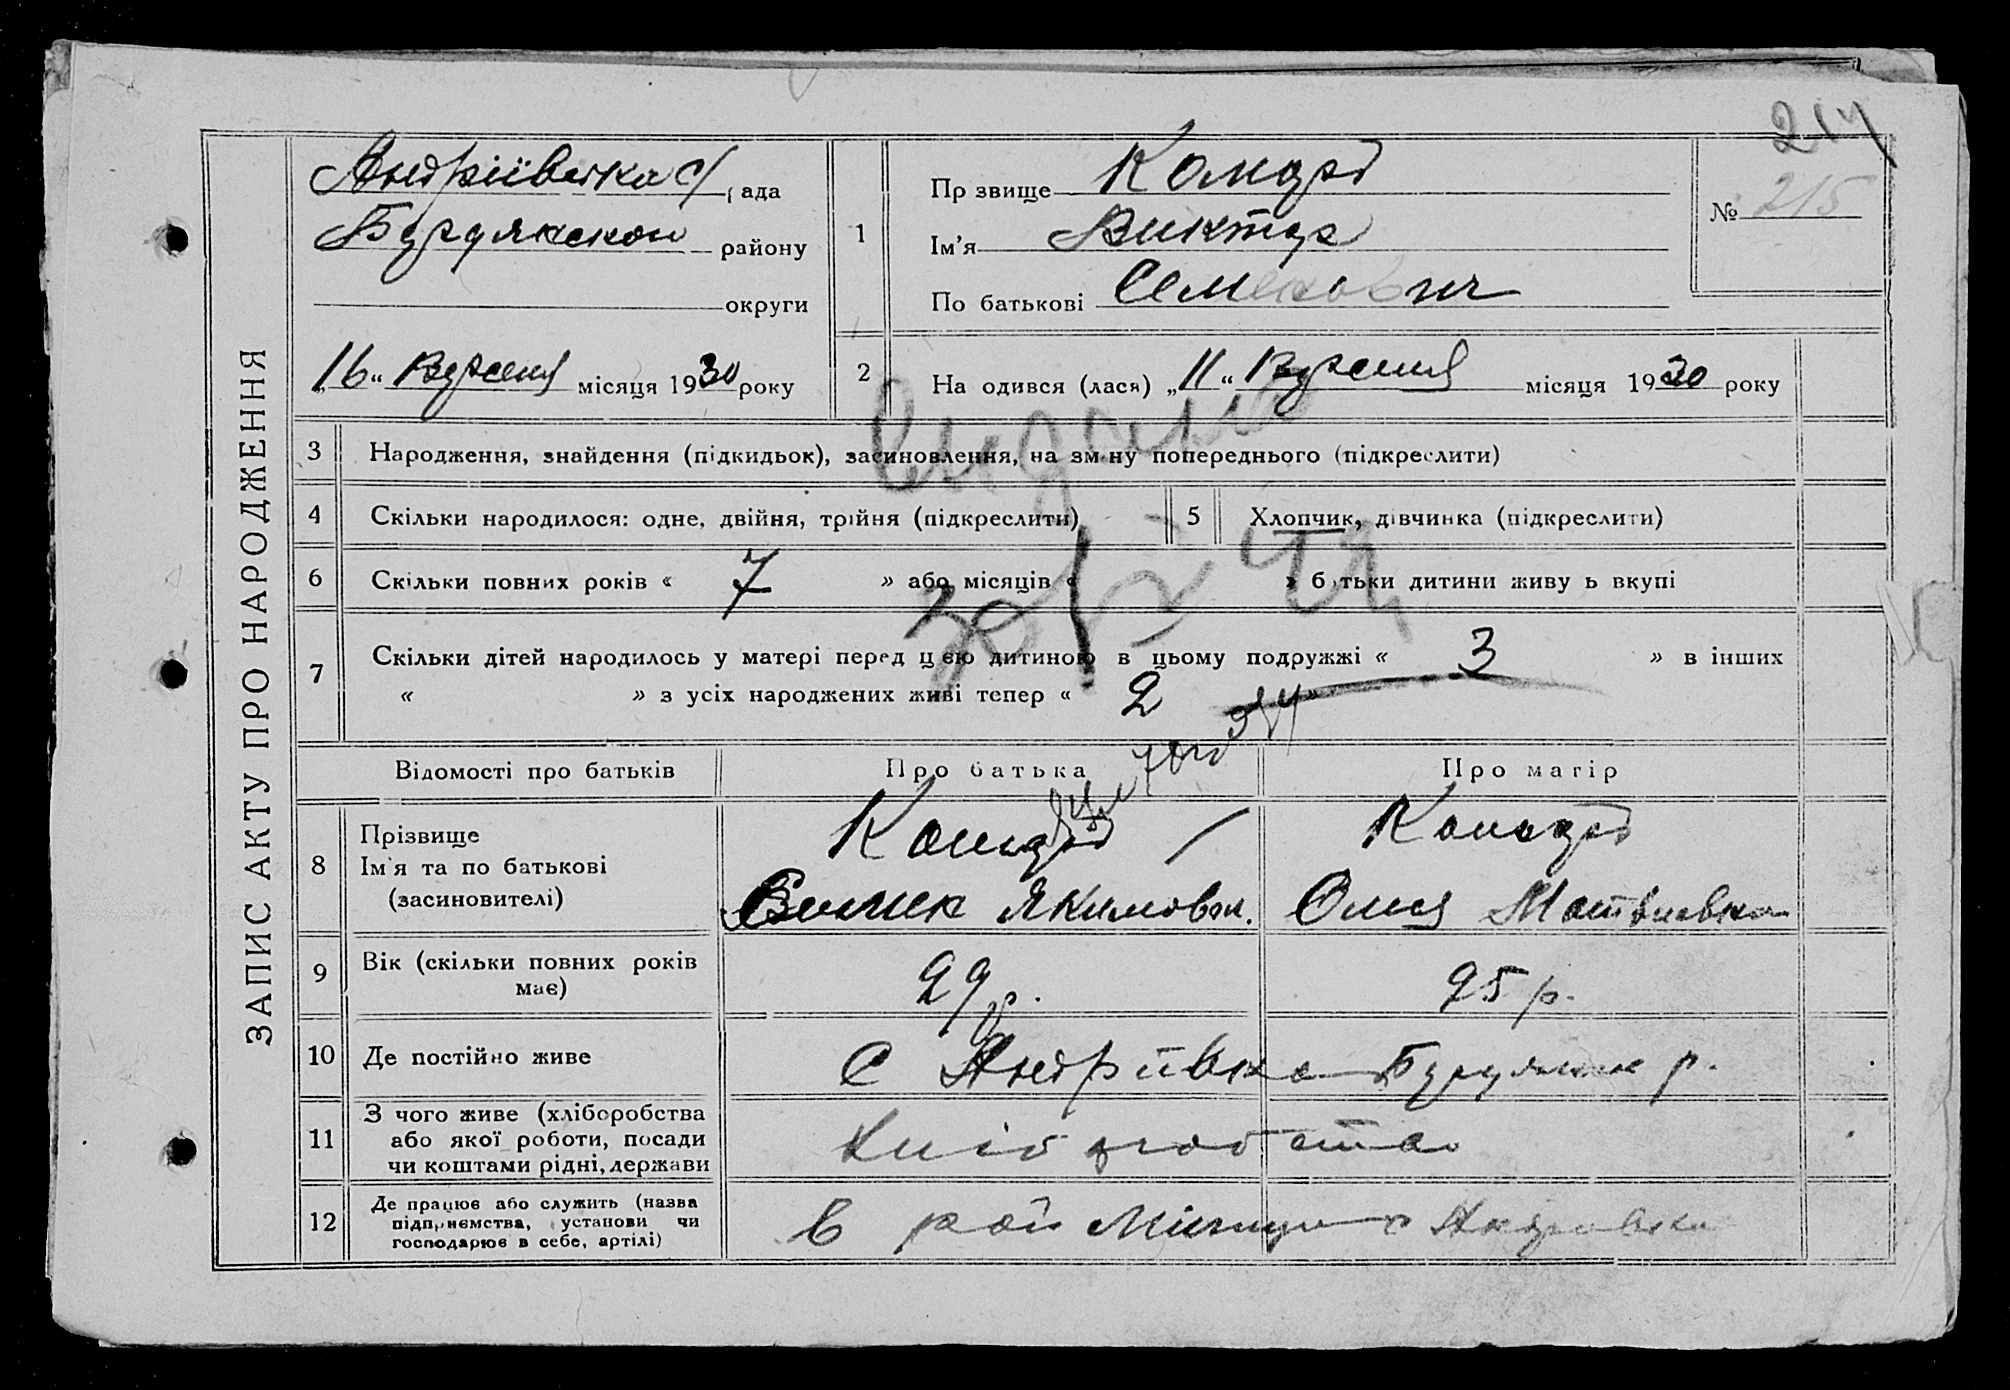 217
ЗАПИС АКТУ ПРО НАРОДЖЕННЯ
Андріївська с/рада
районy
округи
"16" Вересня місяця 1930 року
1
Пр звище
Ім'я Виктор
По батькові Семенович
№ 215
2
На одився (лася) "11" Вересня місяця 1930 року
3 Народження, знайдення (підкидьок), засиновлення, на зм ну попереднього (підкреслити)
4 Скільки народилося: одне, двійня, трійня (підкреслити)
5 Хлопчик, дівчинка (підкреслити)
6 Скільки повних років « 7 » або місяців « » б тьки дитини живу ь вкупі
7 Скільки дітей народилось у матері перед ц єю дитиною в цьому подружжі « 3 » в інших
« » з усіх народжених живі тепер « 2 »
Відомості про батьків Про батька Про матір
8 Прізвище
Ім'я та по батькові
(засиновителі)
Якимович.
Олия Матвиевна
9 Вік (скільки повних років
має)
29 р. 25 р.
10 Де постійно живе
С Андріївка р.
11 З чого живе (хліборобства
або якої роботи, посади
чи коштами рідні, держави
Хлібороботво
12 Де працює або служить (назва
підприємства, установи чи
господарює в себе, артілі)
В